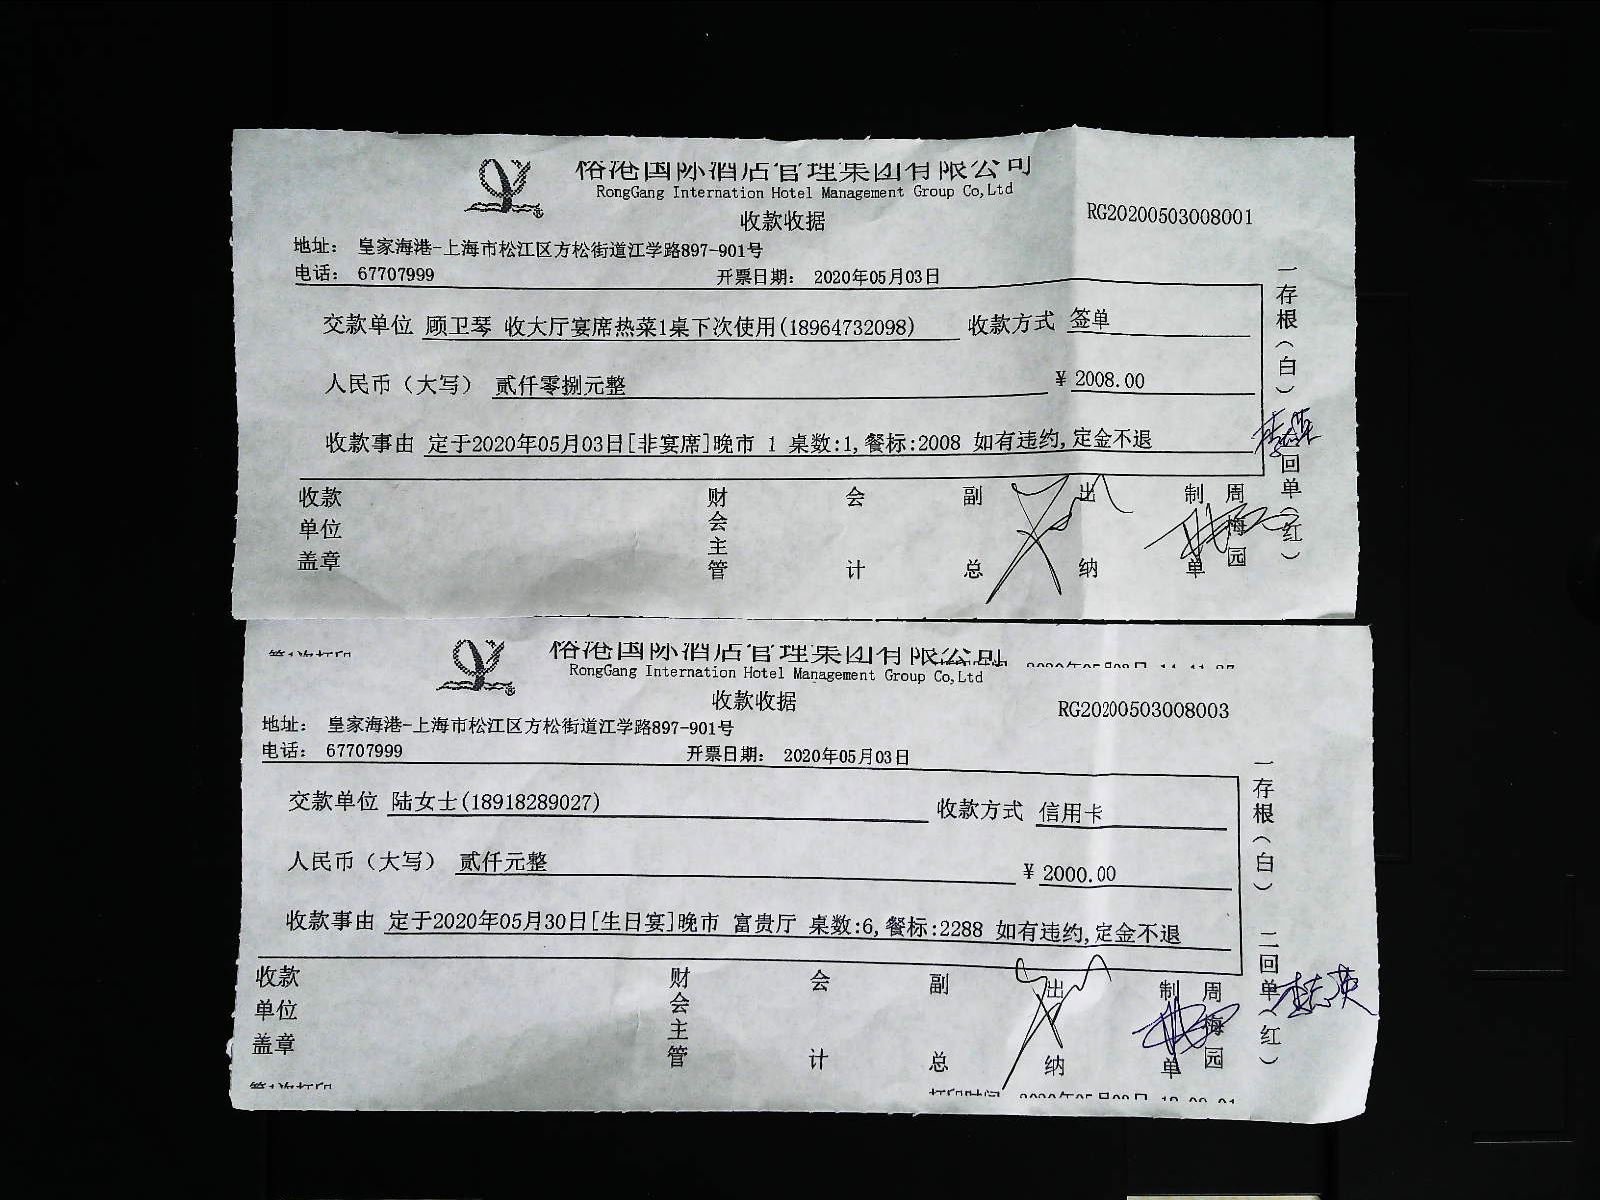 榕港国际酒店管理集团有限公司
RongGang Internation Hotel Management Group Co,Ltd
收款收据
RG20200503008001
地址： 皇家海港-上海市松江区方松街道江学路897-901号
电话： 67707999 开票日期： 2020年05月03日
交款单位 顾卫琴 收大厅宴席热菜1桌下次使用(18964732098) 收款方式 签单
人民币（大写） 贰仟零捌元整 ￥ 2008.00
收款事由 定于2020年05月03日[非宴席]晚市 1 桌数:1,餐标:2008 如有违约,定金不退
收款单位盖章 财会主管 会计 副总 出纳 制单 周梅园
一存根（白） 二回单（红）
第1次打印
榕港国际酒店管理集团有限公司
RongGang Internation Hotel Management Group Co,Ltd
收款收据
RG20200503008003
地址： 皇家海港-上海市松江区方松街道江学路897-901号
电话： 67707999 开票日期： 2020年05月03日
交款单位 陆女士(18918289027) 收款方式 信用卡
人民币（大写） 贰仟元整 ￥ 2000.00
收款事由 定于2020年05月30日[生日宴]晚市 富贵厅 桌数:6,餐标:2288 如有违约,定金不退
收款单位盖章 财会主管 会计 副总 出纳 制单 周梅园
一存根（白） 二回单（红）
李志英
第1次打印